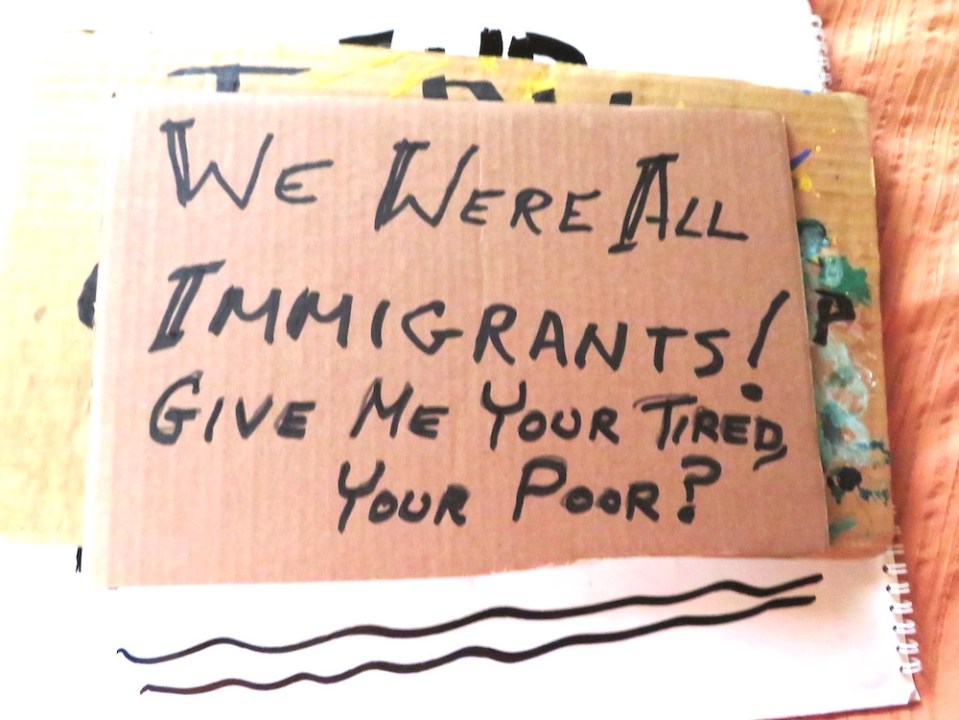 WE WERE ALL
IMMIGRANTS!
GIVE ME YOUR TIRED,
YOUR POOR?